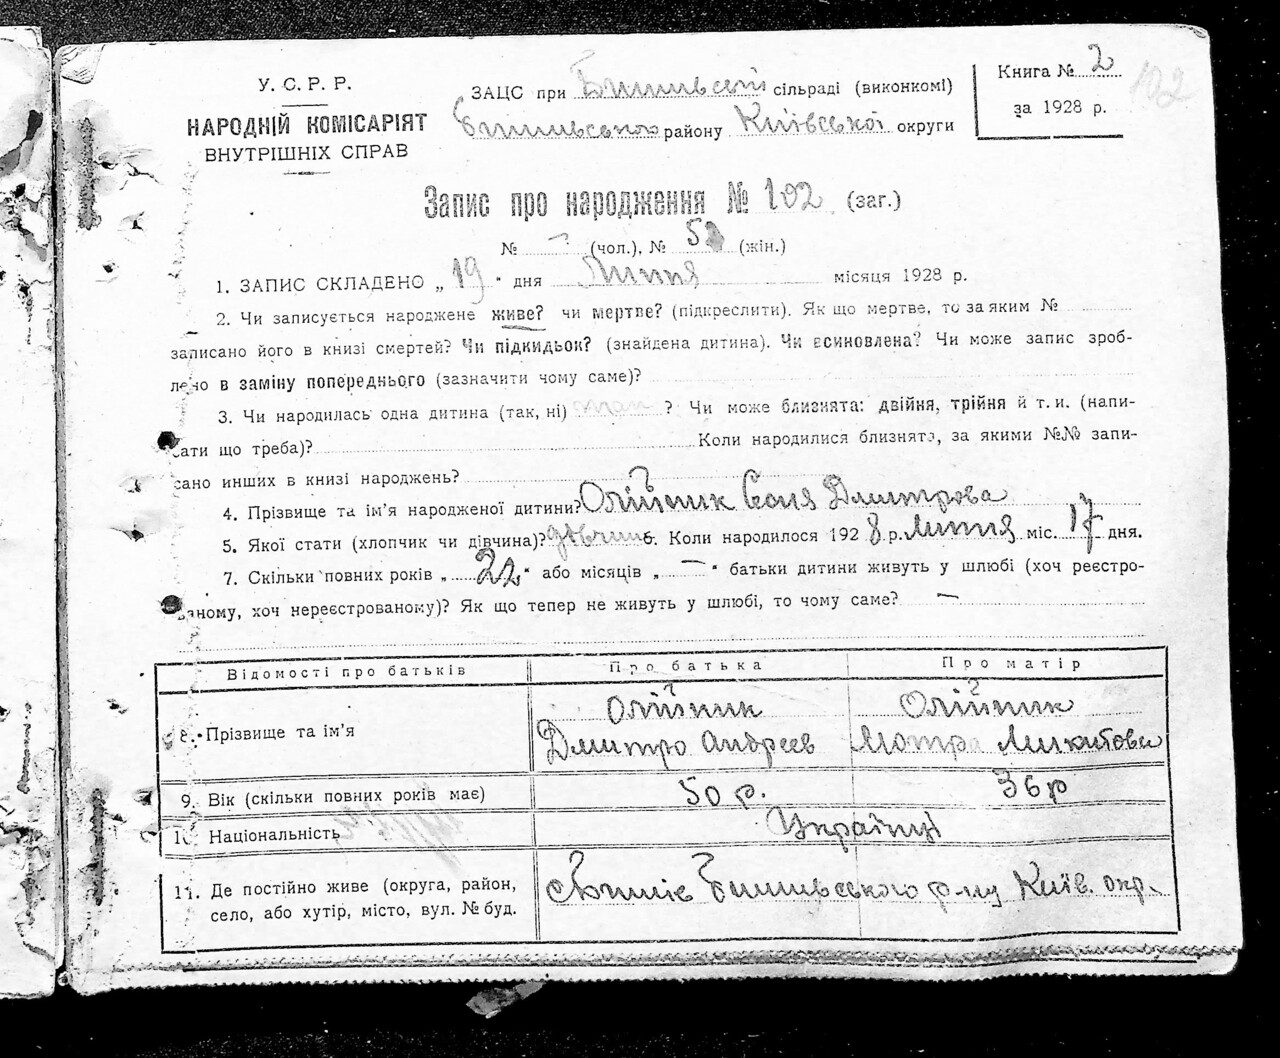 У. С. Р. Р.
НАРОДНІЙ КОМІСАРІЯТ
ВНУТРІШНІХ СПРАВ
ЗАЦС при сільраді (виконкомі)
Бишівського району Київської округи
Книга № 2
за 1928 р.
102
Запис про народження № 102 (заг.)
№ — (чол.), № (жін.)
1. ЗАПИС СКЛАДЕНО „ 19 " дня Липня місяця 1928 р.
2. Чи записується народжене живе? чи мертве? (підкреслити). Як що мертве, то за яким №
записано його в книзі смертей? Чи підкидьок? (знайдена дитина). Чи всиновлена? Чи може запис зроб-
лено в заміну попереднього (зазначити чому саме)?
3. Чи народилась одна дитина (так, ні) так ? Чи може близнята: двійня, трійня й т. и. (напи-
сати що треба)? Коли народилися близнята, за якими №№ запи-
сано инших в книзі народжень?
4. Прізвище та ім'я народженої дитини? Олійник Соня Дмитрова
5. Якої стати (хлопчик чи дівчина)? 6. Коли народилося 1928 р. Липня міс. 17 дня.
7. Скільки повних років „ 22 " або місяців „ — " батьки дитини живуть у шлюбі (хоч реєстро-
ваному, хоч нереєстрованому)? Як що тепер не живуть у шлюбі, то чому саме? —
Відомості про батьків Про батька Про матір
8. Прізвище та ім'я Олійник Дмитро Андреев Олійник Мотра Микитова
9. Вік (скільки повних років має) 50 р. 36 р
10. Національність Українці
11. Де постійно живе (округа, район,
село, або хутір, місто, вул. № буд. Бишівського р-ну Київ. окр.